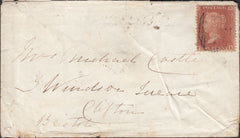 Mrs Michael Castle
3 Windsor Terrace
Clifton
Bristol